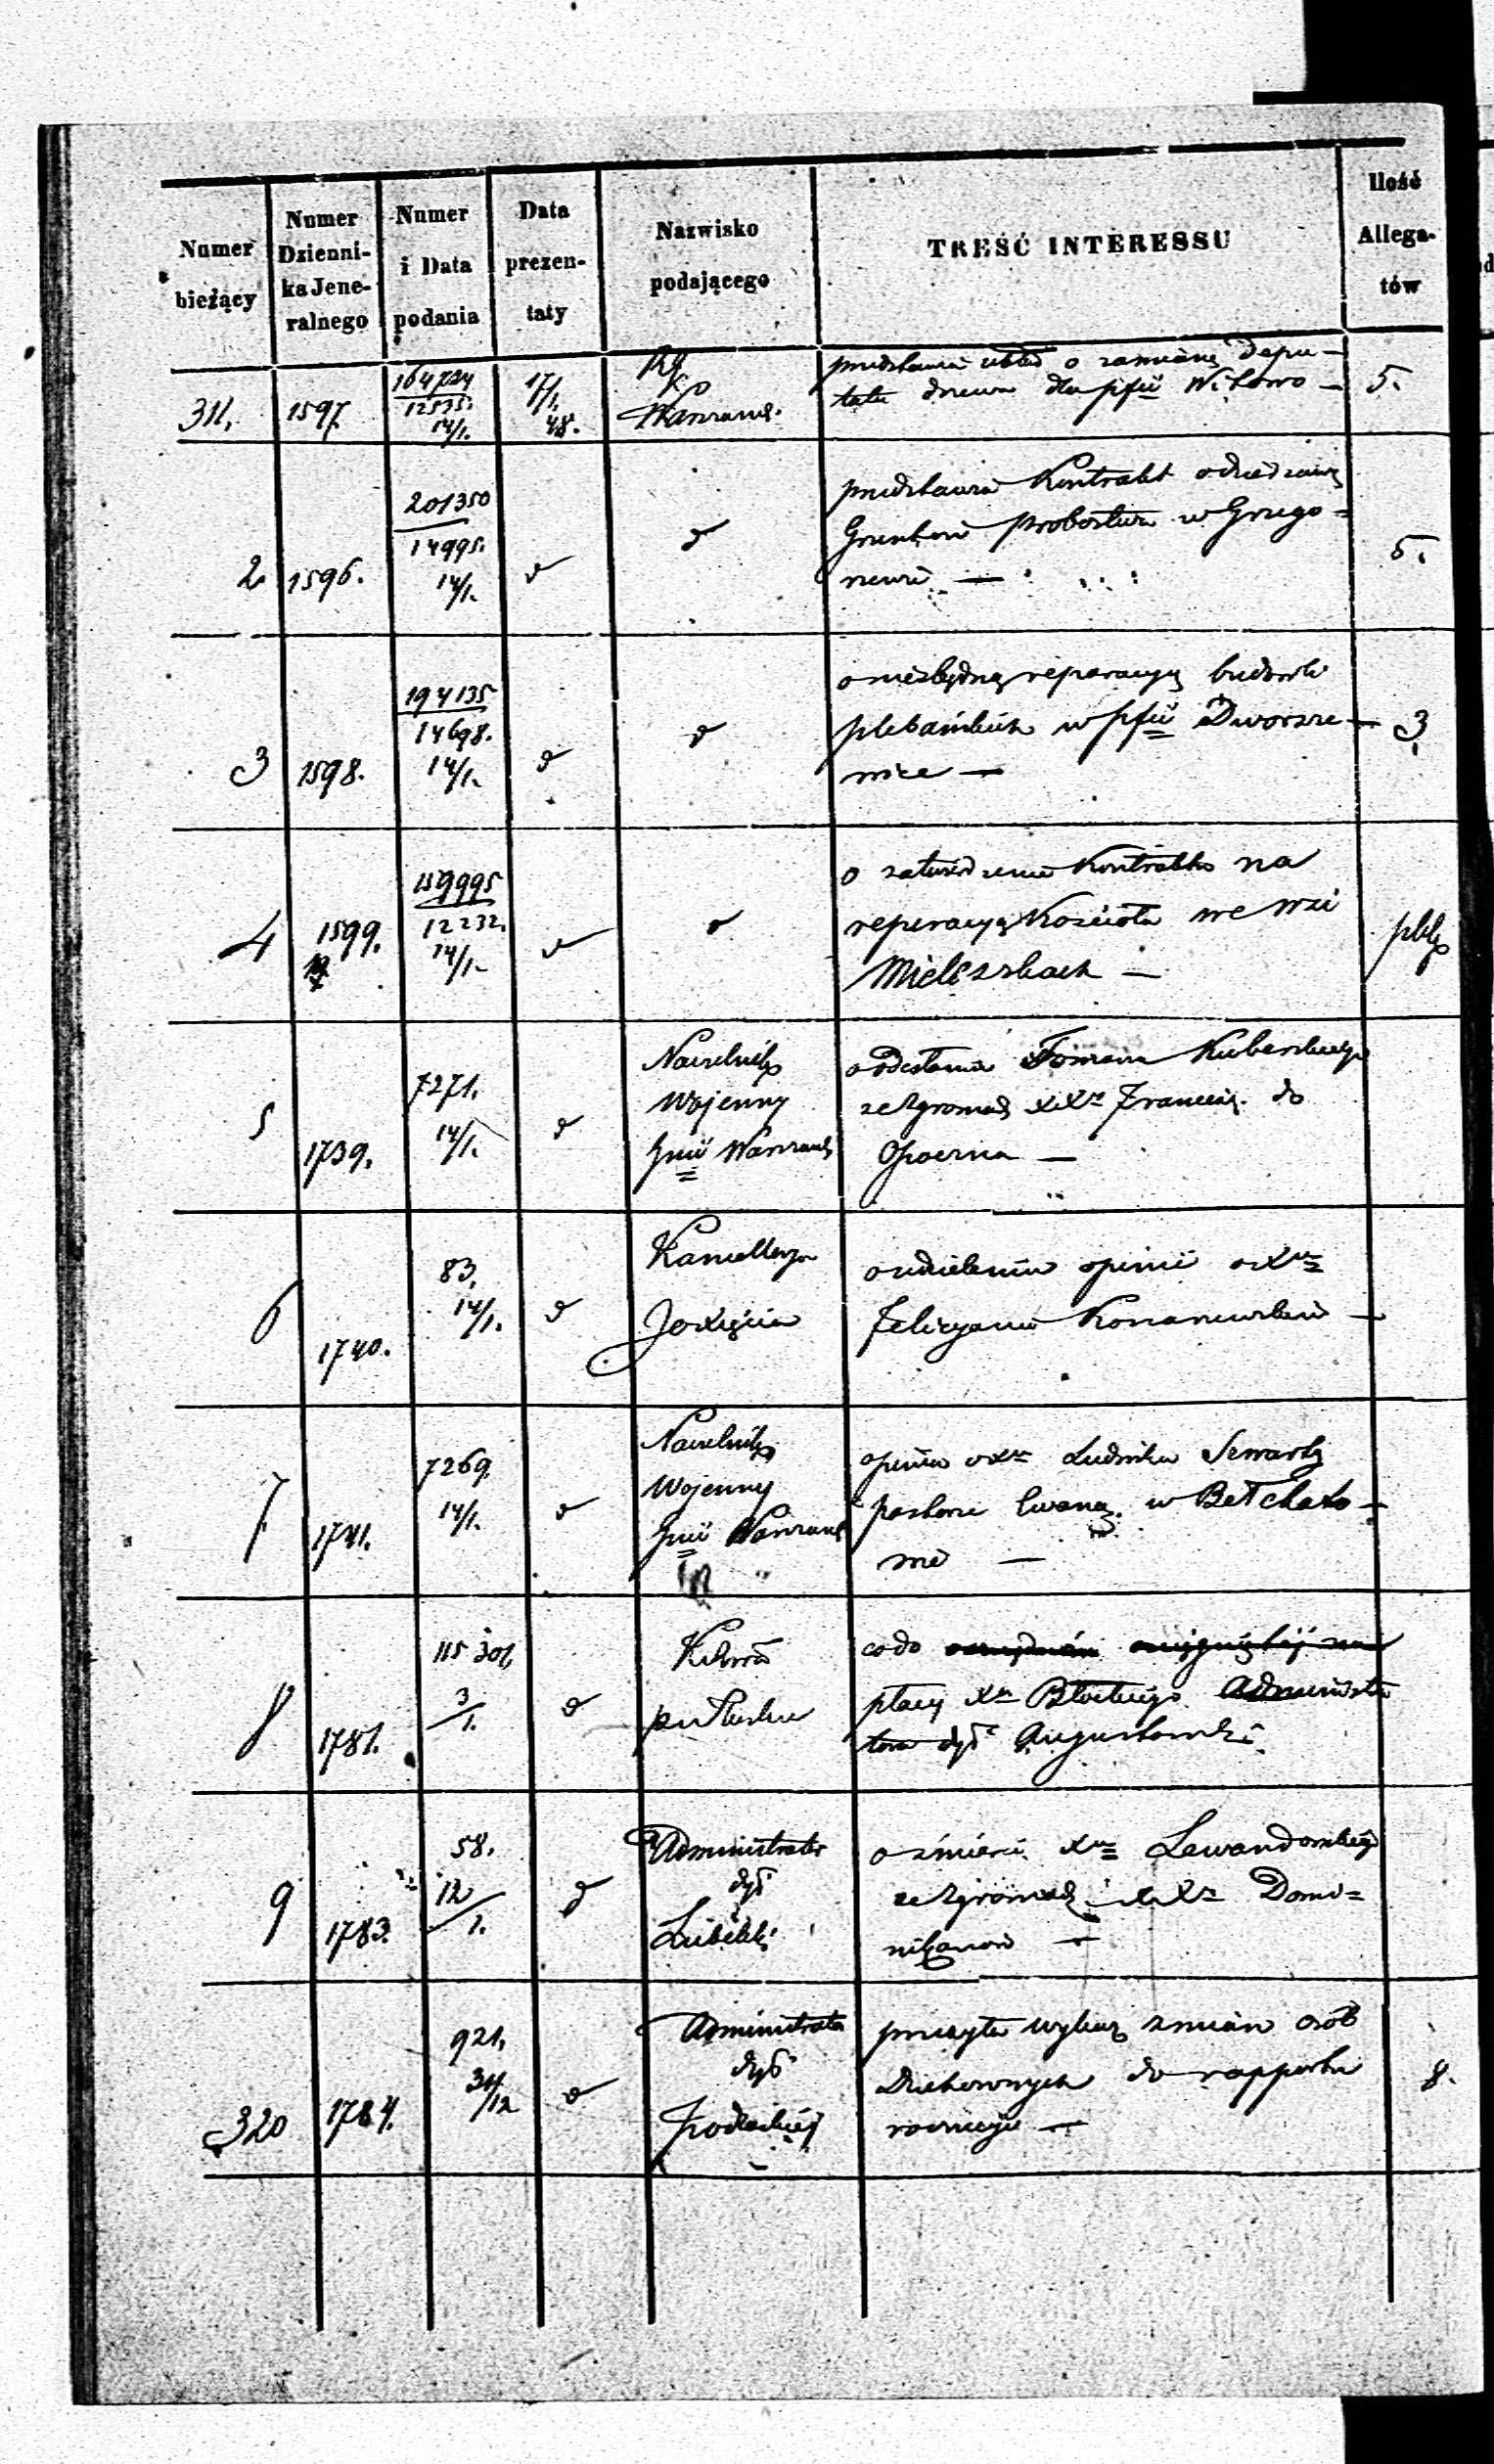 Numer bieżący
Numer Dzienni- ka Jene- ralnego
Numer i Data podania
Data prezen- taty
Nazwisko podającego
TREŚĆ INTERESSU
Ilość Allega- tów
311. 1597. 12535. 14/1. 17/1. 48. Rg Warszaws. przedstawia układ o zamianę depu-
tatu drzewa dla pfii Witowo — 5.
2. 1596. 201350 14995. 14/1. d d przedstawia Kontrakt o dzierżawę
Gruntów probostwa w Grzego=
rzewie — 5.
3 1598. 194135 14698. 14/1. d d o niezbędną reparacyą budowli
plebańskich w pfii Dworsze —
wice — 3
4 1599. 159995 12232. 14/1. d d o zatwierdzenie Kontraktu na
reperacyą Kościoła we wsi
Mieliszkach —
5 1739. 7271. 14/1. d Naczelnik
Wojenny
Gnii Warszaws
o odesłaniu Tomasza Kuberskiego
ze Zgromadz XX Francisz. do
Opoczna —
6 1740. 83. 14/1. d Kancellarya
JO Xięcia
o udzielenie opinii o X
Felicyanie —
7. 1741. 7269. 14/1. d Naczelnik
Wojenny
Gnii Warszaws
opinia o X Ludwiku
pastorze Ewang. w Bełchato —
wie —
8 1781. 115301. 3/1. d
co do
płacy X Administra
tora dyec Augustowski.
9 1783. 58. 12/1. d Administrator
dyec
Lubelski
o śmierci X Lewandowskiego
ze Zgromadz XX Domi=
nikanów —
320 1784. 921. 31/12 d Administrator
dyec
Podlaskiej
przesyła wykaz zmian osób
Duchownych do rapportu
rocznego — 8.